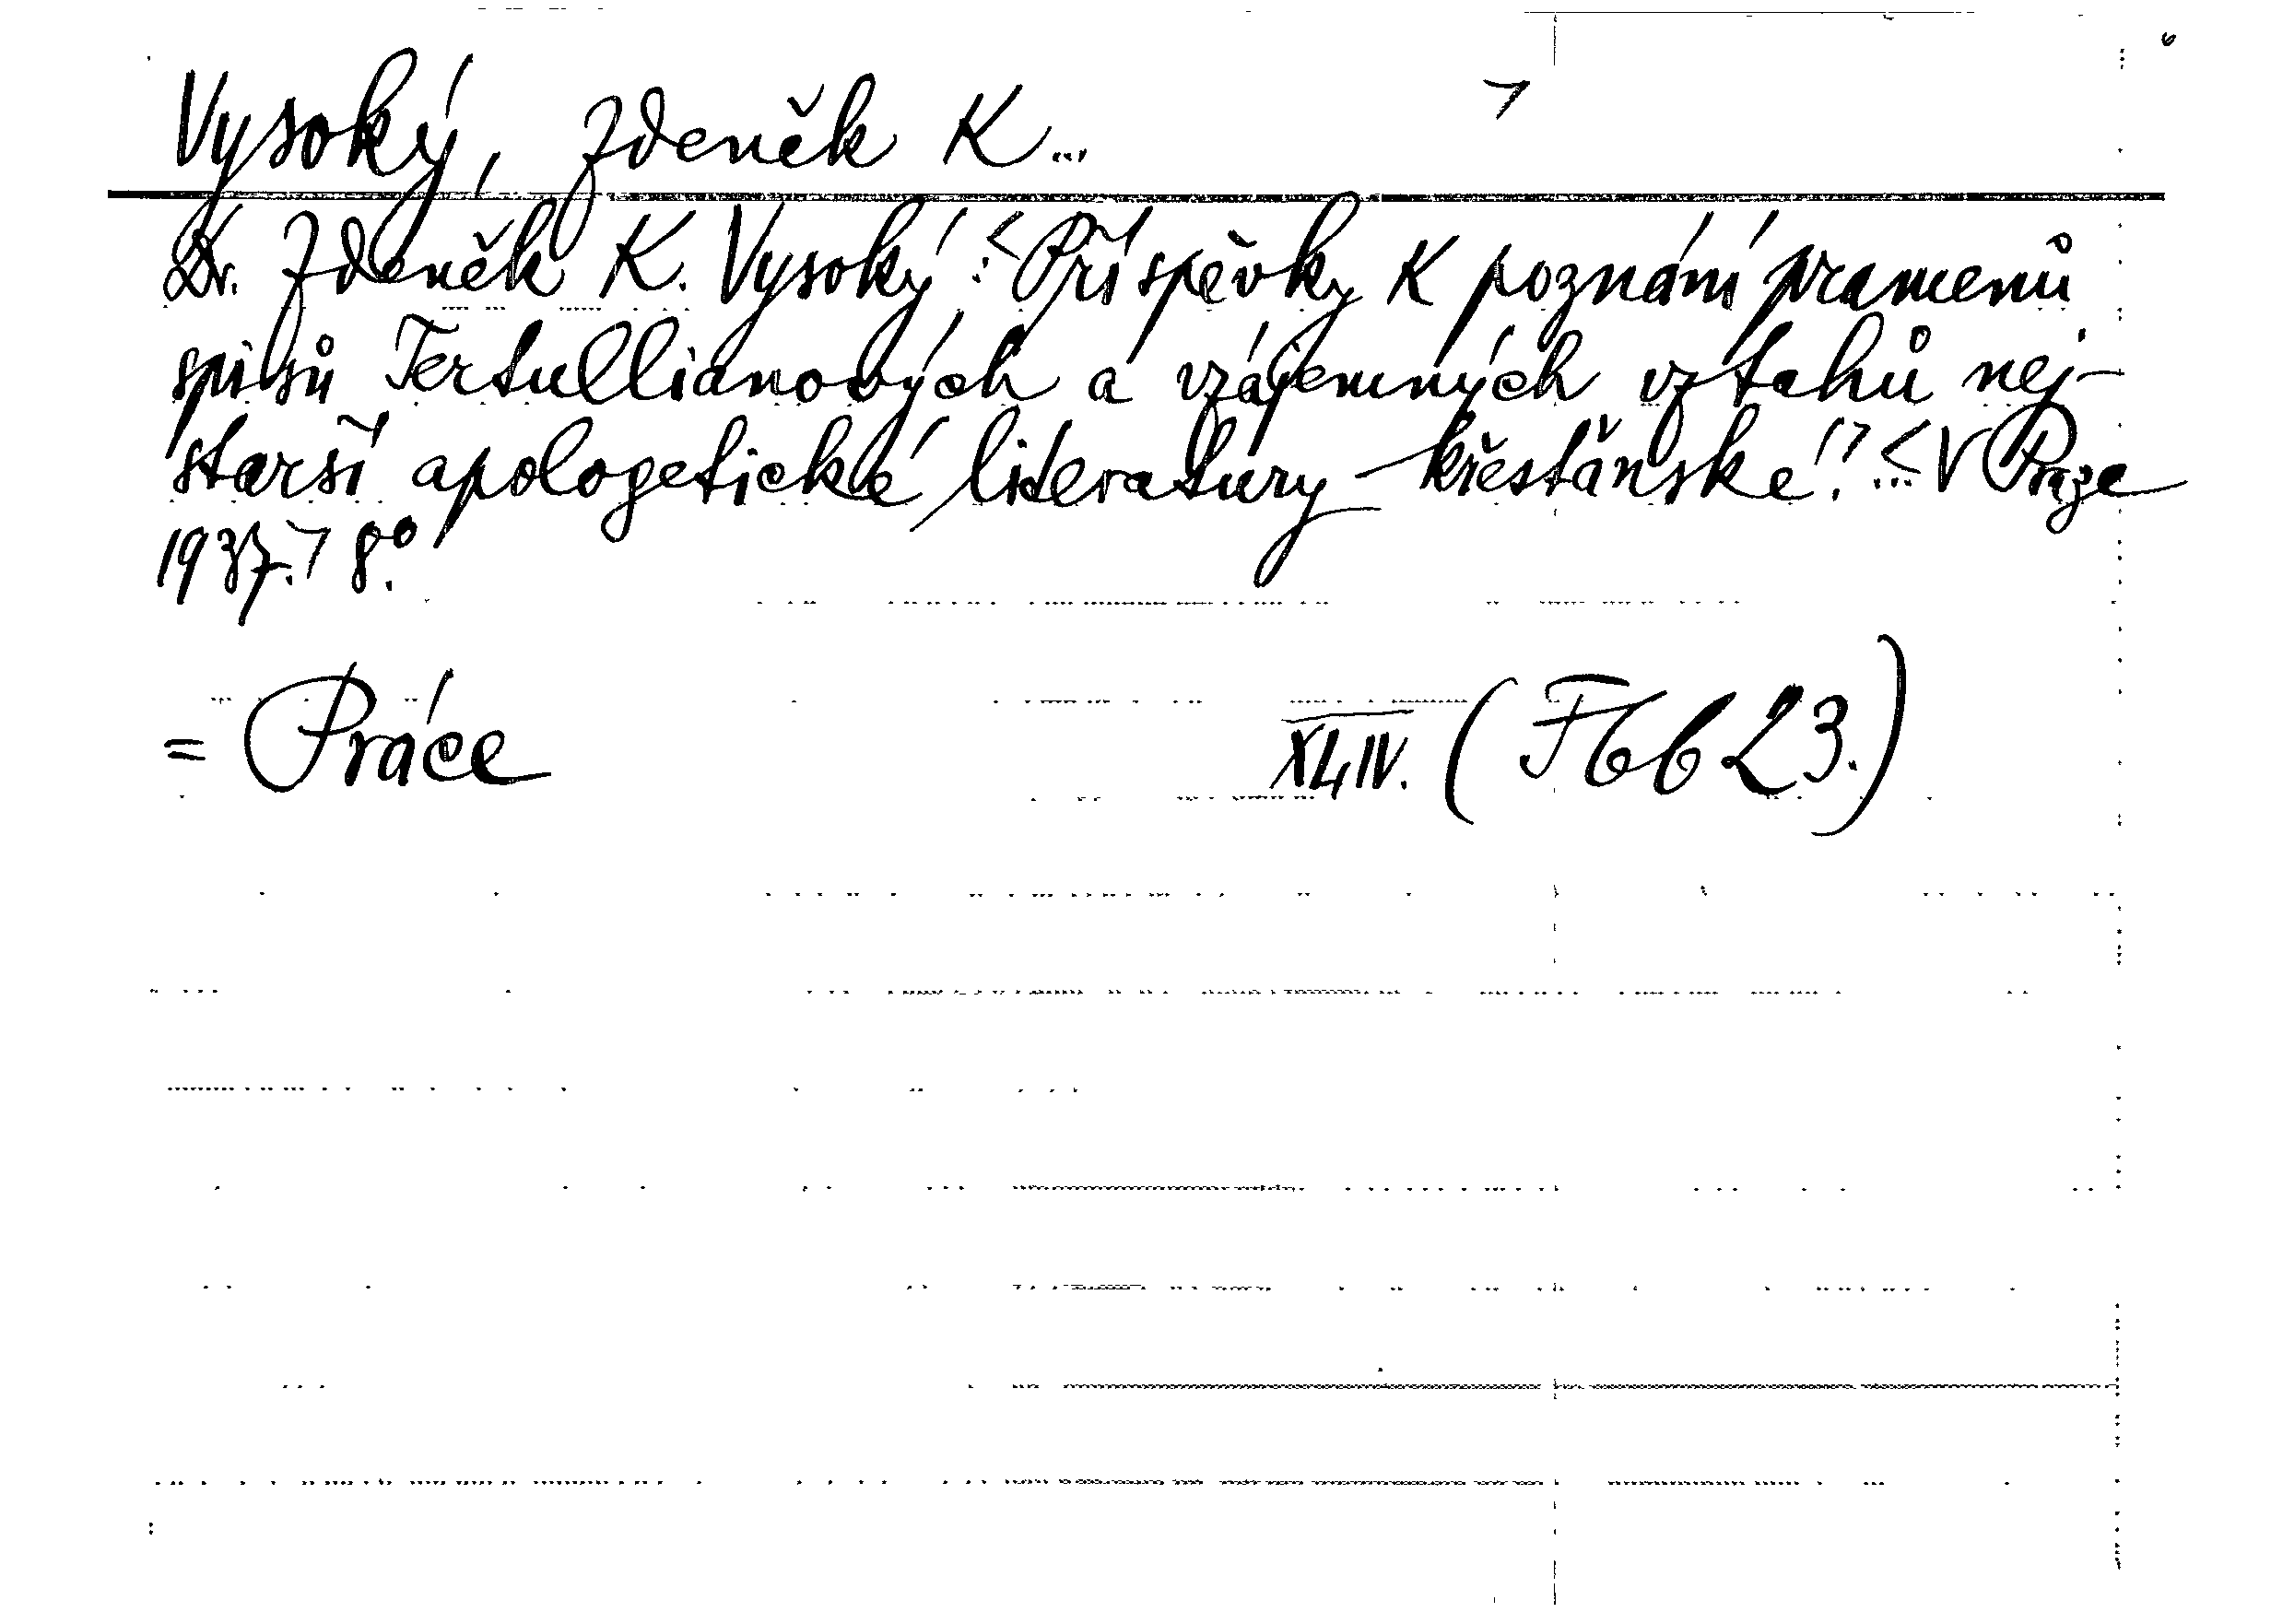 Vysoký, Zdeněk K... >
Dr. Zdeněk K. Vysoký: <Příspěvky k poznání pramenů
spisů Tertullianových a vzájemných vztahů nej-
starší apologetické literatury křesťanské.> ... < V Praze
1937.> 8º.
= Práce XLIV. (Fbb 23.)